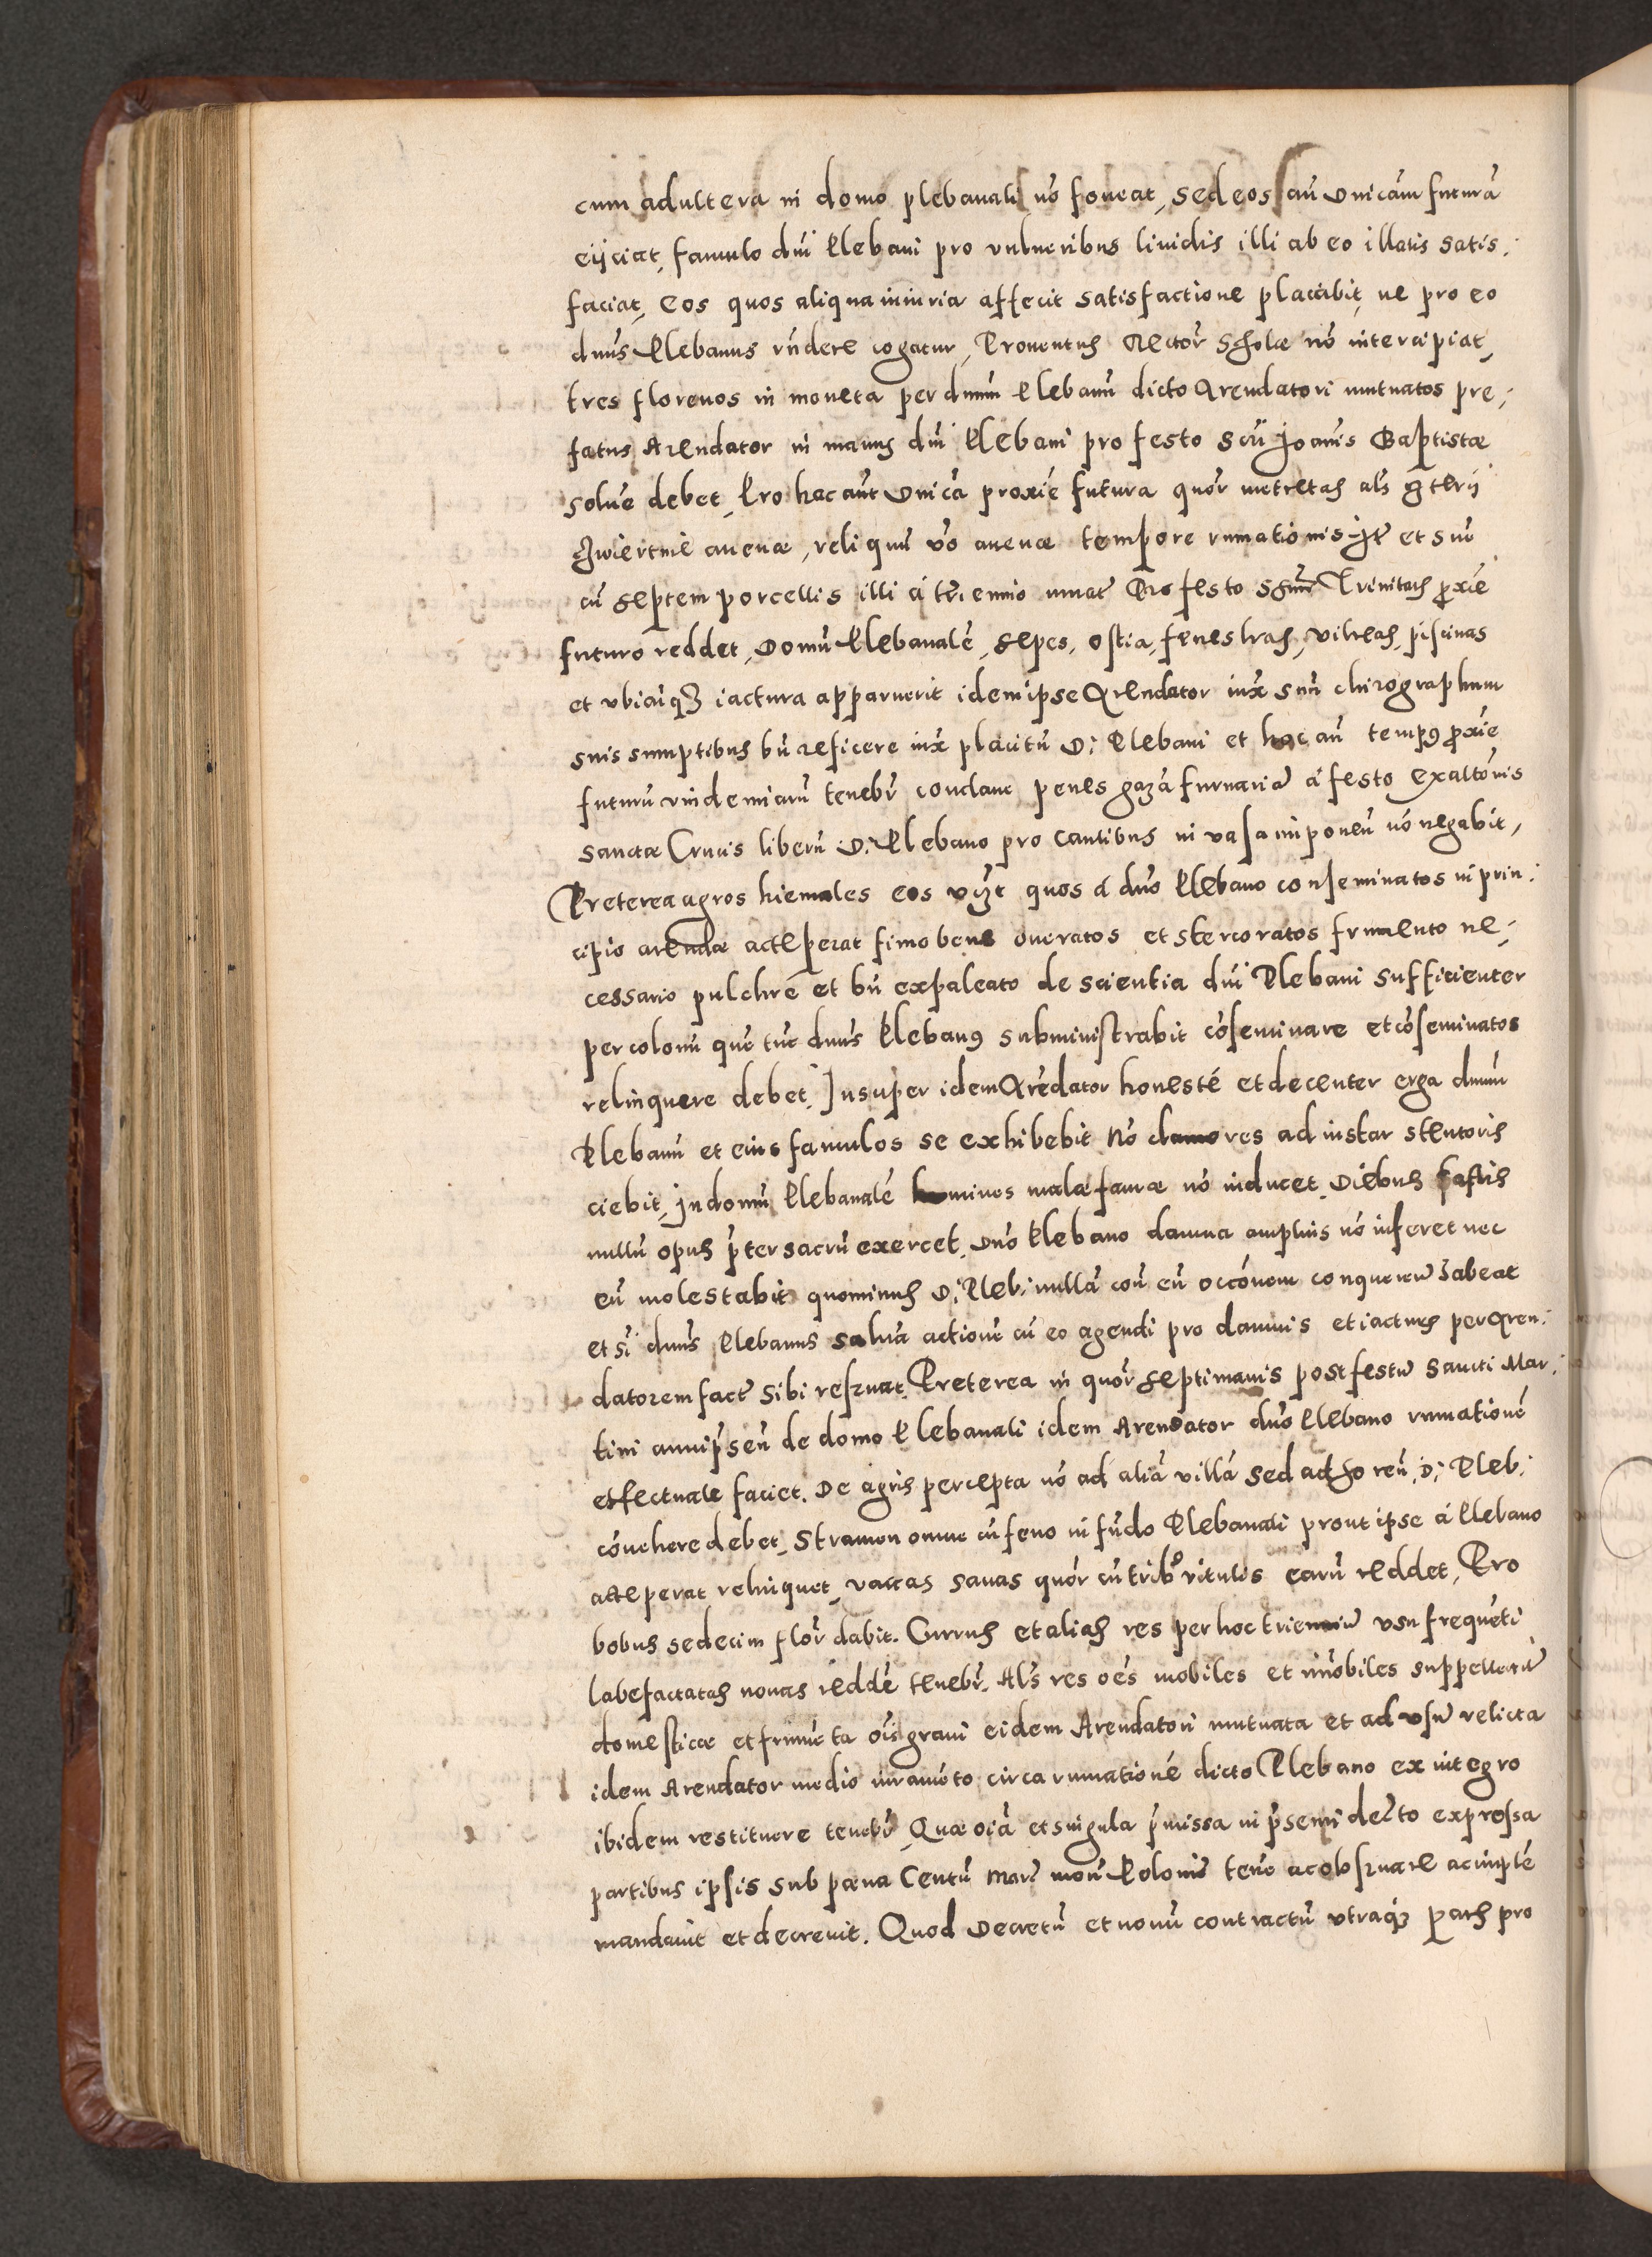 cum adultera in domo plebanali nō foveat, sed eos añ Dnicam futurā
eijciat, famulo dni Plebani pro vulneribus lividis illi ab eo illatis satis,
faciat, Eos quos aliqua iniuria affecit satisfactione placabit, ne pro eo
dnus Plebanus rñdere cogatur, Proventus Rector Scholæ nō intercipiat,
tres florenos in moneta per dnum Plebanū dicto Arendatori mutuatos præ,
fatus Arendator in manus dni Plebani pro festo sči Joanis Baptistæ
solvẽ debet, Pro hac aut Dnicã proxiẽ futura quõr metretas als
avenæ, reliquũ vo avenæ tempore rumationis Itẽ et sue
cũ septem porcellis illi à triennio Pro festo Trinitatis pxiẽ
futuro reddet, Domũ Plebanalẽ, sepes, ostia, fenestras, vitreas, piscinas
et vbicuq3 iactura apparuerit idem ipse Arendator iuxᵃ suũ chirographum
suis sumptibus bñ reficere iuxᵃ placitũ D: Plebani et hoc añ tempus pxiẽ
futurũ vindemiarũ tenebr conclave penes gazã furnariã à festo Exaltõnis
Sanctæ Crucis liberũ D: Plebano pro cantibus in vasa imponeñ nõ negabit,
Præterea agros hiemales eos vizt quos à dno Plebano conseminatos in prin:
cipio arendæ acceperat fimo bene oneratos et stercoratos frumento ne,
cessario pulchrẽ et bñ expaleato de scientia dni Plebani sufficienter
per colonũ quẽ tũc dnus Plebanus subministrabit cõseminare et cõseminatos
relinquere debet. Insuper idem Arẽdator honestè et decenter erga dnum
Plebanũ et eius famulos se exhibebit Nõ clamores ad instar stentoris
ciebit, In domũ Plebanalẽ homines malæ famæ nõ inducet, Diebus festis
nullũ opus p̃ter sacrũ exercet, Dno Plebano damna amplius nõ inferet nec
eũ molestabit quominus D: Pleb: nullã coñ eũ occõnem conquerem̃ habeat
et si dnus Plebanus salvã actionẽ cũ eo agendi pro damnis et iacturis per Aren:
datorem fact sibi resvat. Præterea in quõr septimanis post festũ Sancti Mar:
tini anni p̃sen de domo Plebanali idem Arendator dno Plebano rumationẽ
effectualẽ faciet. De agris percepta nõ ad aliã villã sed ad horeũ D: Pleb:
cõvehere debet, Stramen omne cũ feno in fũdo Plebanali prout ipse à Plebano
acceperat relinquet, vaccas sanas quõr cũ tribꝰ vitulis earũ reddet, Pro
bobus sedecim flor dabit. Currus et alias res per hoc trienniũ vsu frequẽti
labefactatas novas reddẽ tenebr. Als res oẽs mobiles et imobiles suppellectiẽ
domesticæ et frumẽta oĩs grani eidem Arendatori mutuata et ad vsũ relicta
idem Arendator medio iuramẽto circa rumationẽ dicto Plebano ex integro
ibidem restituere tenebr Quæ oĩa et singula p̃missa in p̃senti decto expressa
partibus ipsis sub pæna Centũ marc monẽ Polonie tenẽ ac observare ac implẽ
mandavit et decrevit. Quod Decretũ et novũ contractũ vtraq3 Pars pro